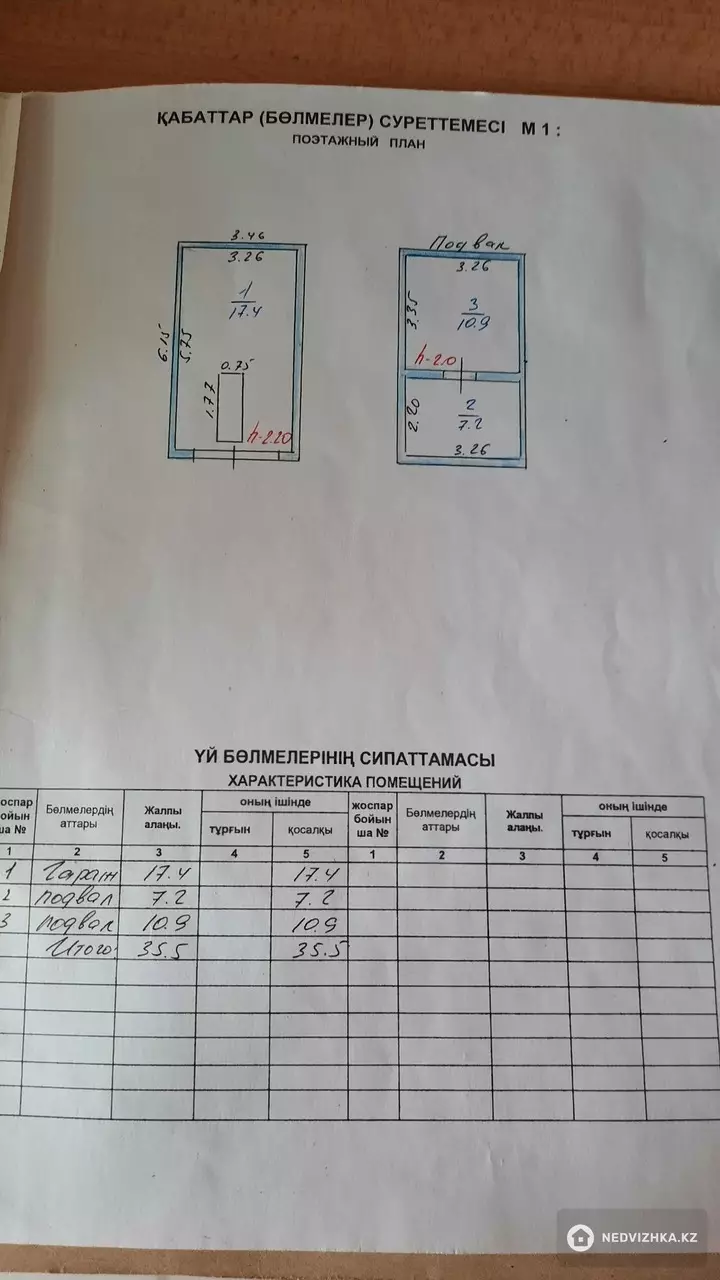 ҚАБАТТАР (БӨЛМЕЛЕР) СУРЕТТЕМЕСІ М 1 :
ПОЭТАЖНЫЙ ПЛАН
3.46
3.26
1
17.4
6.15
5.75
0.75
1.77
h-2.20
Подвал
3.26
3.35
3
10.9
h-2.0
2.20
2
7.2
3.26
ҮЙ БӨЛМЕЛЕРІНІҢ СИПАТТАМАСЫ
ХАРАКТЕРИСТИКА ПОМЕЩЕНИЙ
оспар бойын ша № Бөлмелердің аттары Жалпы алаңы. оның ішінде жоспар бойын ша № Бөлмелердің аттары Жалпы алаңы. оның ішінде
тұрғын қосалқы тұрғын қосалқы
1 2 3 4 5 1 2 3 4 5
1 Гараж 17.4 17.4
2 подвал 7.2 7.2
3 подвал 10.9 10.9
Итого: 35.5 35.5
NEDVIZHKA.KZ